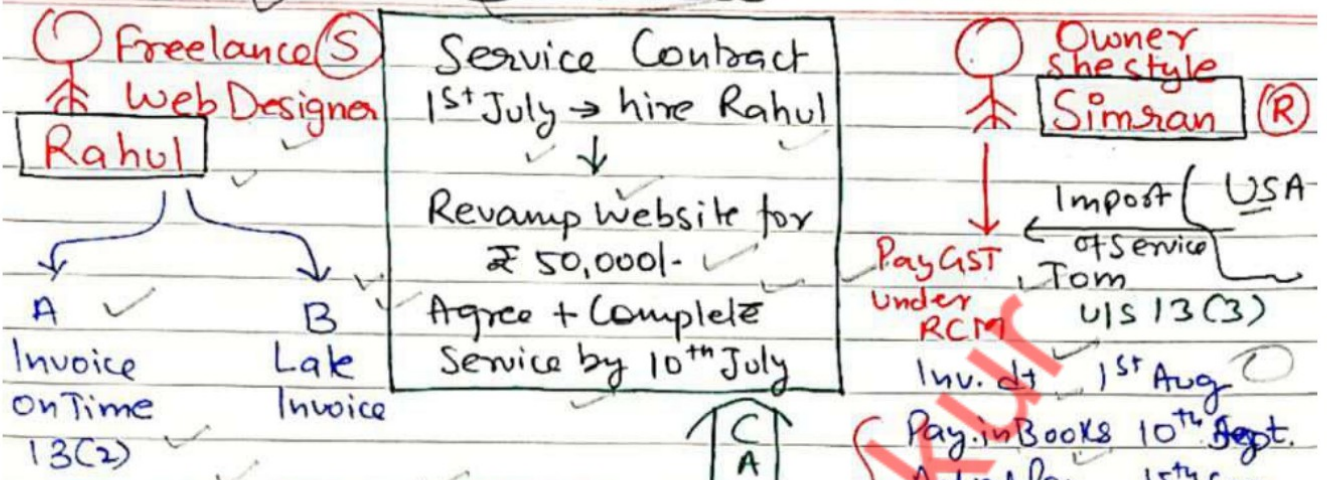 Freelance (S)
Web Designer
Rahul
A
Invoice
on Time
13(2)
B
Late
Invoice
Service Contract
1st July → hire Rahul
↓
Revamp Website for
₹ 50,000/-
Agree + Complete
Service by 10th July
C
A
Owner
She style
Simran (R)
Import
of Service
USA
Tom
U/S 13(3)
Pay GST
Under
RCM
Inv. dt 1st Aug
Pay. in Books 10th Sept.
kur